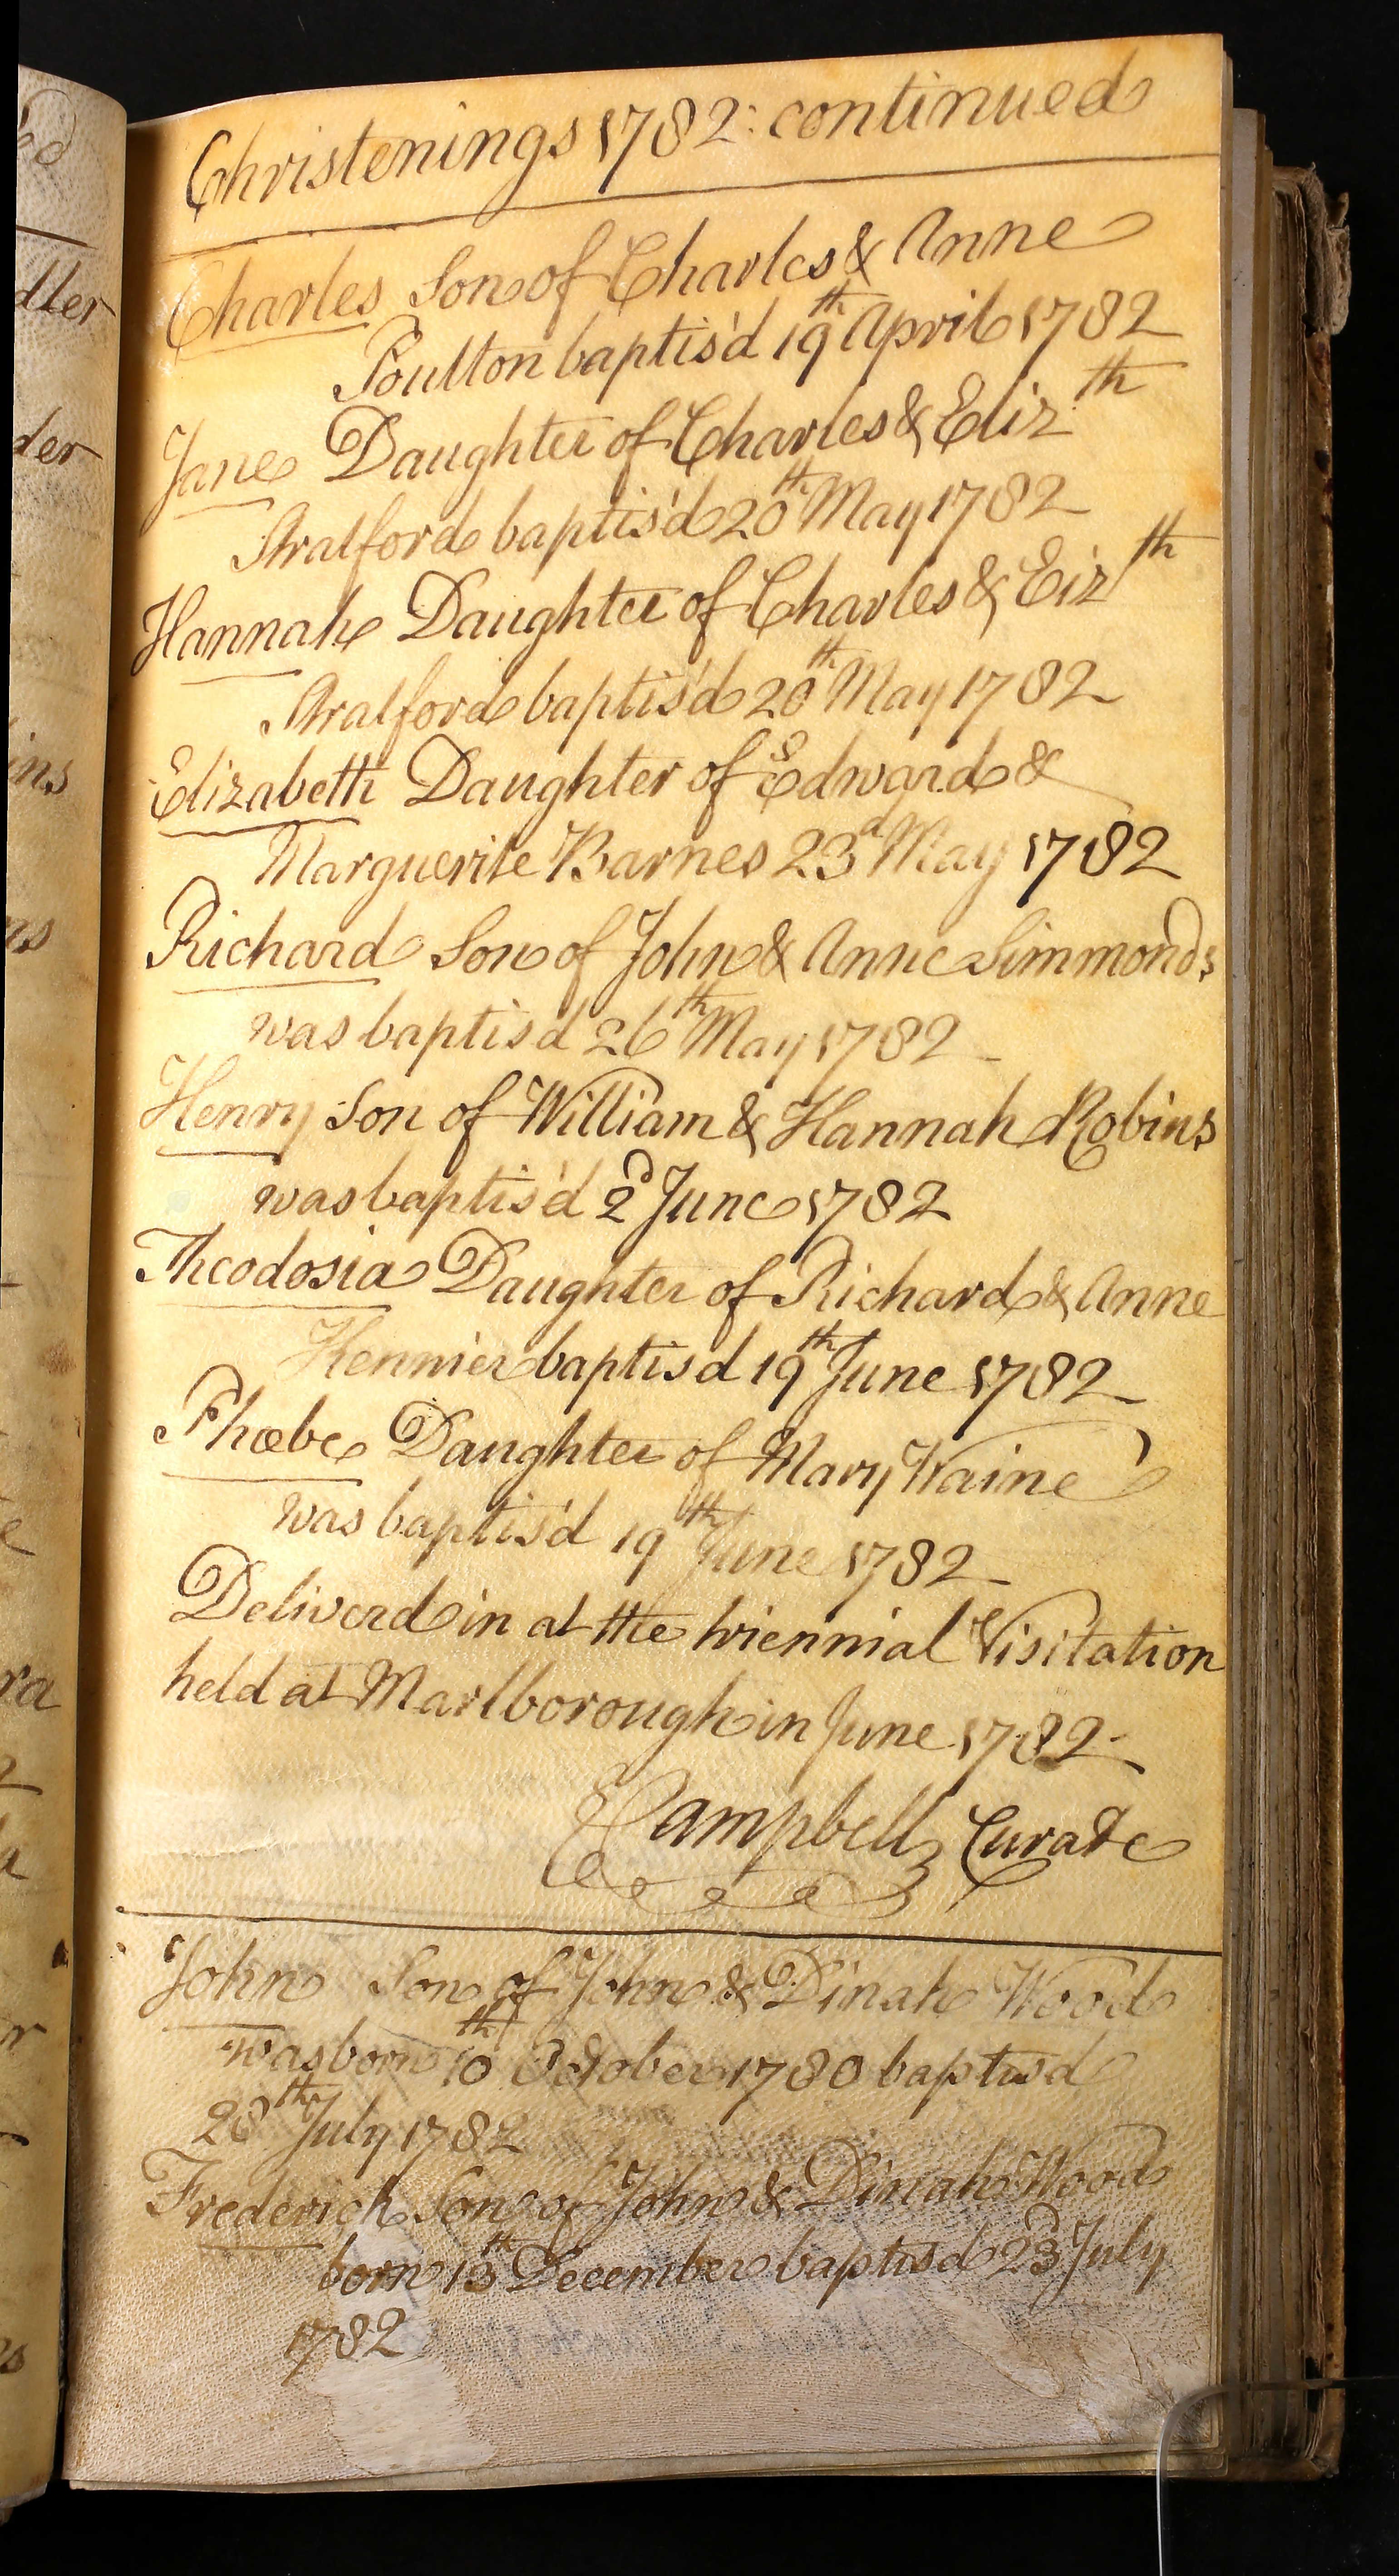 Christenings 1782: continued
Charles Son of Charles & Anne
Poulton baptis'd 19th April 1782
Jane Daughter of Charles & Eliz:th
Stratford baptis'd 20th May 1782
Hannah Daughter of Charles & Eizth
Stratford baptis'd 20th May 1782
Elizabeth Daughter of Edward &
Marguerite Barnes 23d May 1782
Richard Son of John & Anne Simmonds
was baptis'd 26th May 1782
Henry Son of William & Hannah Robins
was baptis'd 2d June 1782
Theodosia Daughter of Richard & Anne
baptis'd 19th June 1782
Phœbe Daughter of Mary Waine
was baptis'd 19th June 1782
Deliverd in at the triennial Visitation
held at Marlborough in June 1782
Campbell Curate
John Son of John & Dinah Wood
was born 10th October 1780 baptis'd
28th July 1782
Frederick Son of John & Dinah Wood
born 13th December baptis'd 23d July
1782